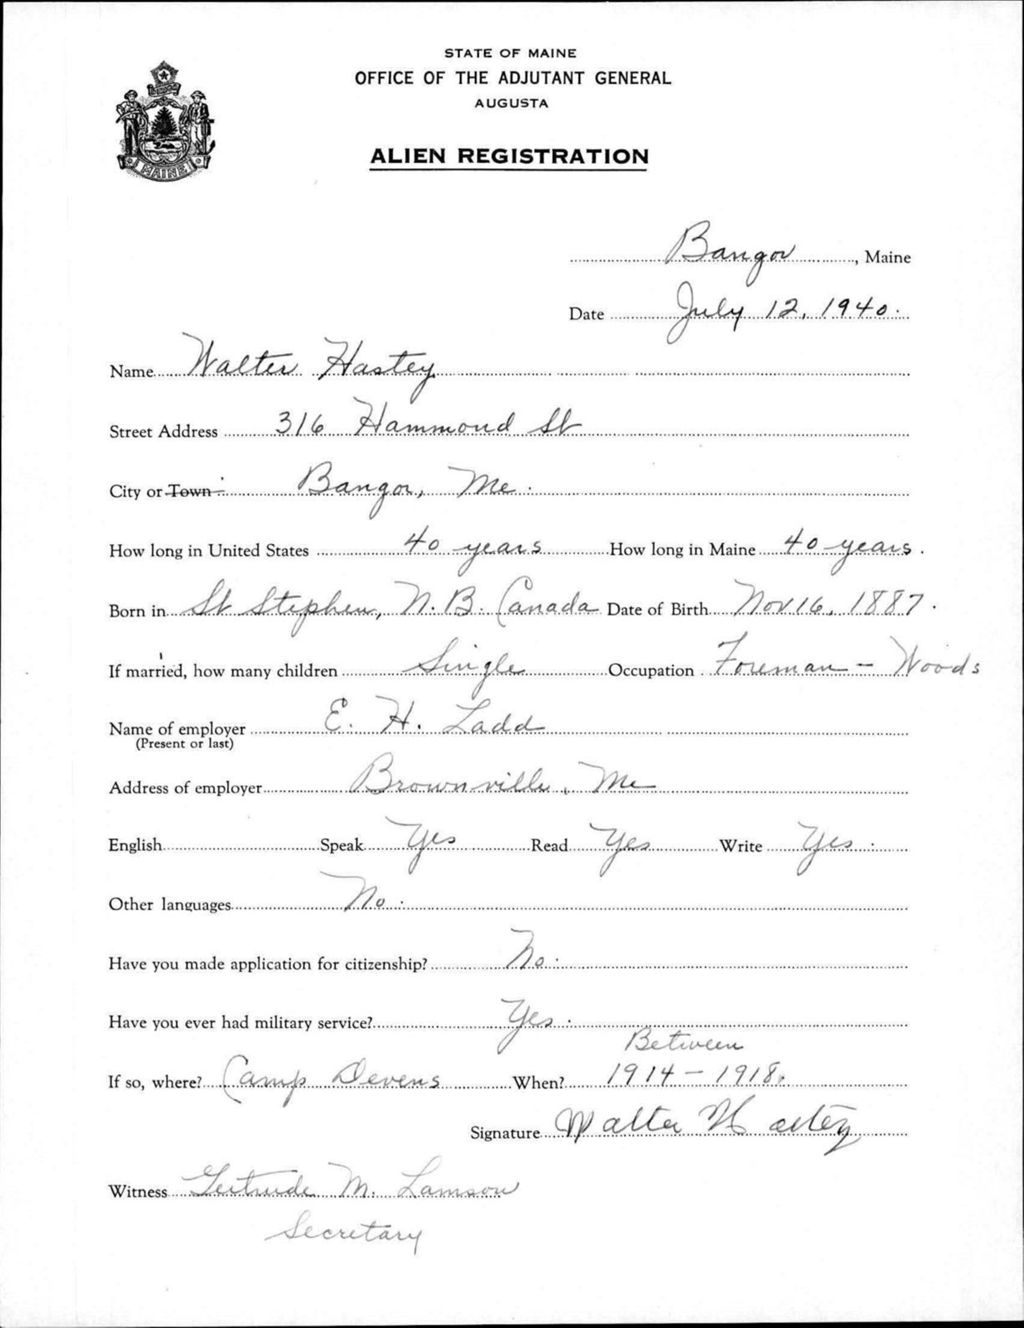 STATE OF MAINE
OFFICE OF THE ADJUTANT GENERAL
AUGUSTA
MAINE
ALIEN REGISTRATION
Bangor, Maine
Date July 12, 1940.
Name Walter Hastey
Street Address 316 Hammond St
City or Town Bangor, Me.
How long in United States 40 years How long in Maine 40 years.
Born in St Stephen, N.B. Canada Date of Birth Nov 16, 1887.
If married, how many children Single Occupation Foreman - Woods
Name of employer E. H. Ladd
(Present or last)
Address of employer Brownville, Me
English Speak Yes Read Yes Write Yes.
Other languages No.
Have you made application for citizenship? No.
Have you ever had military service? Yes.
Between
If so, where? Camp Devens When? 1914 - 1918.
Signature Walter Hastey
Witness Gertrude M. Lamson
Secretary